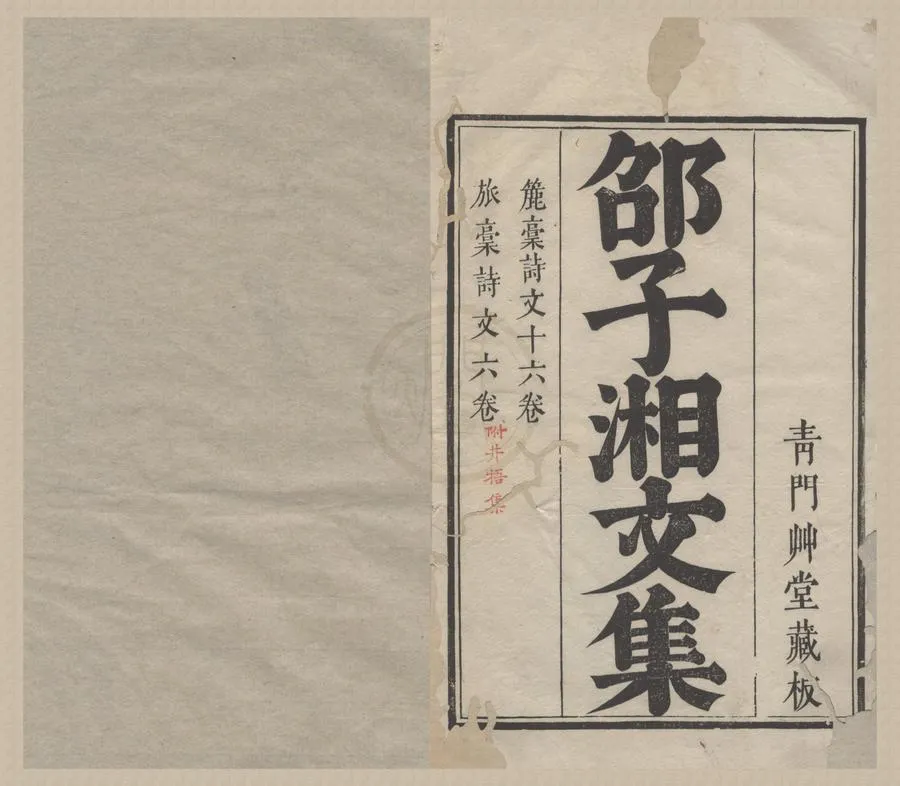 青門艸堂藏板
邵子湘文集
簏稾詩文十六卷
旅稾詩文六卷
附井梧集